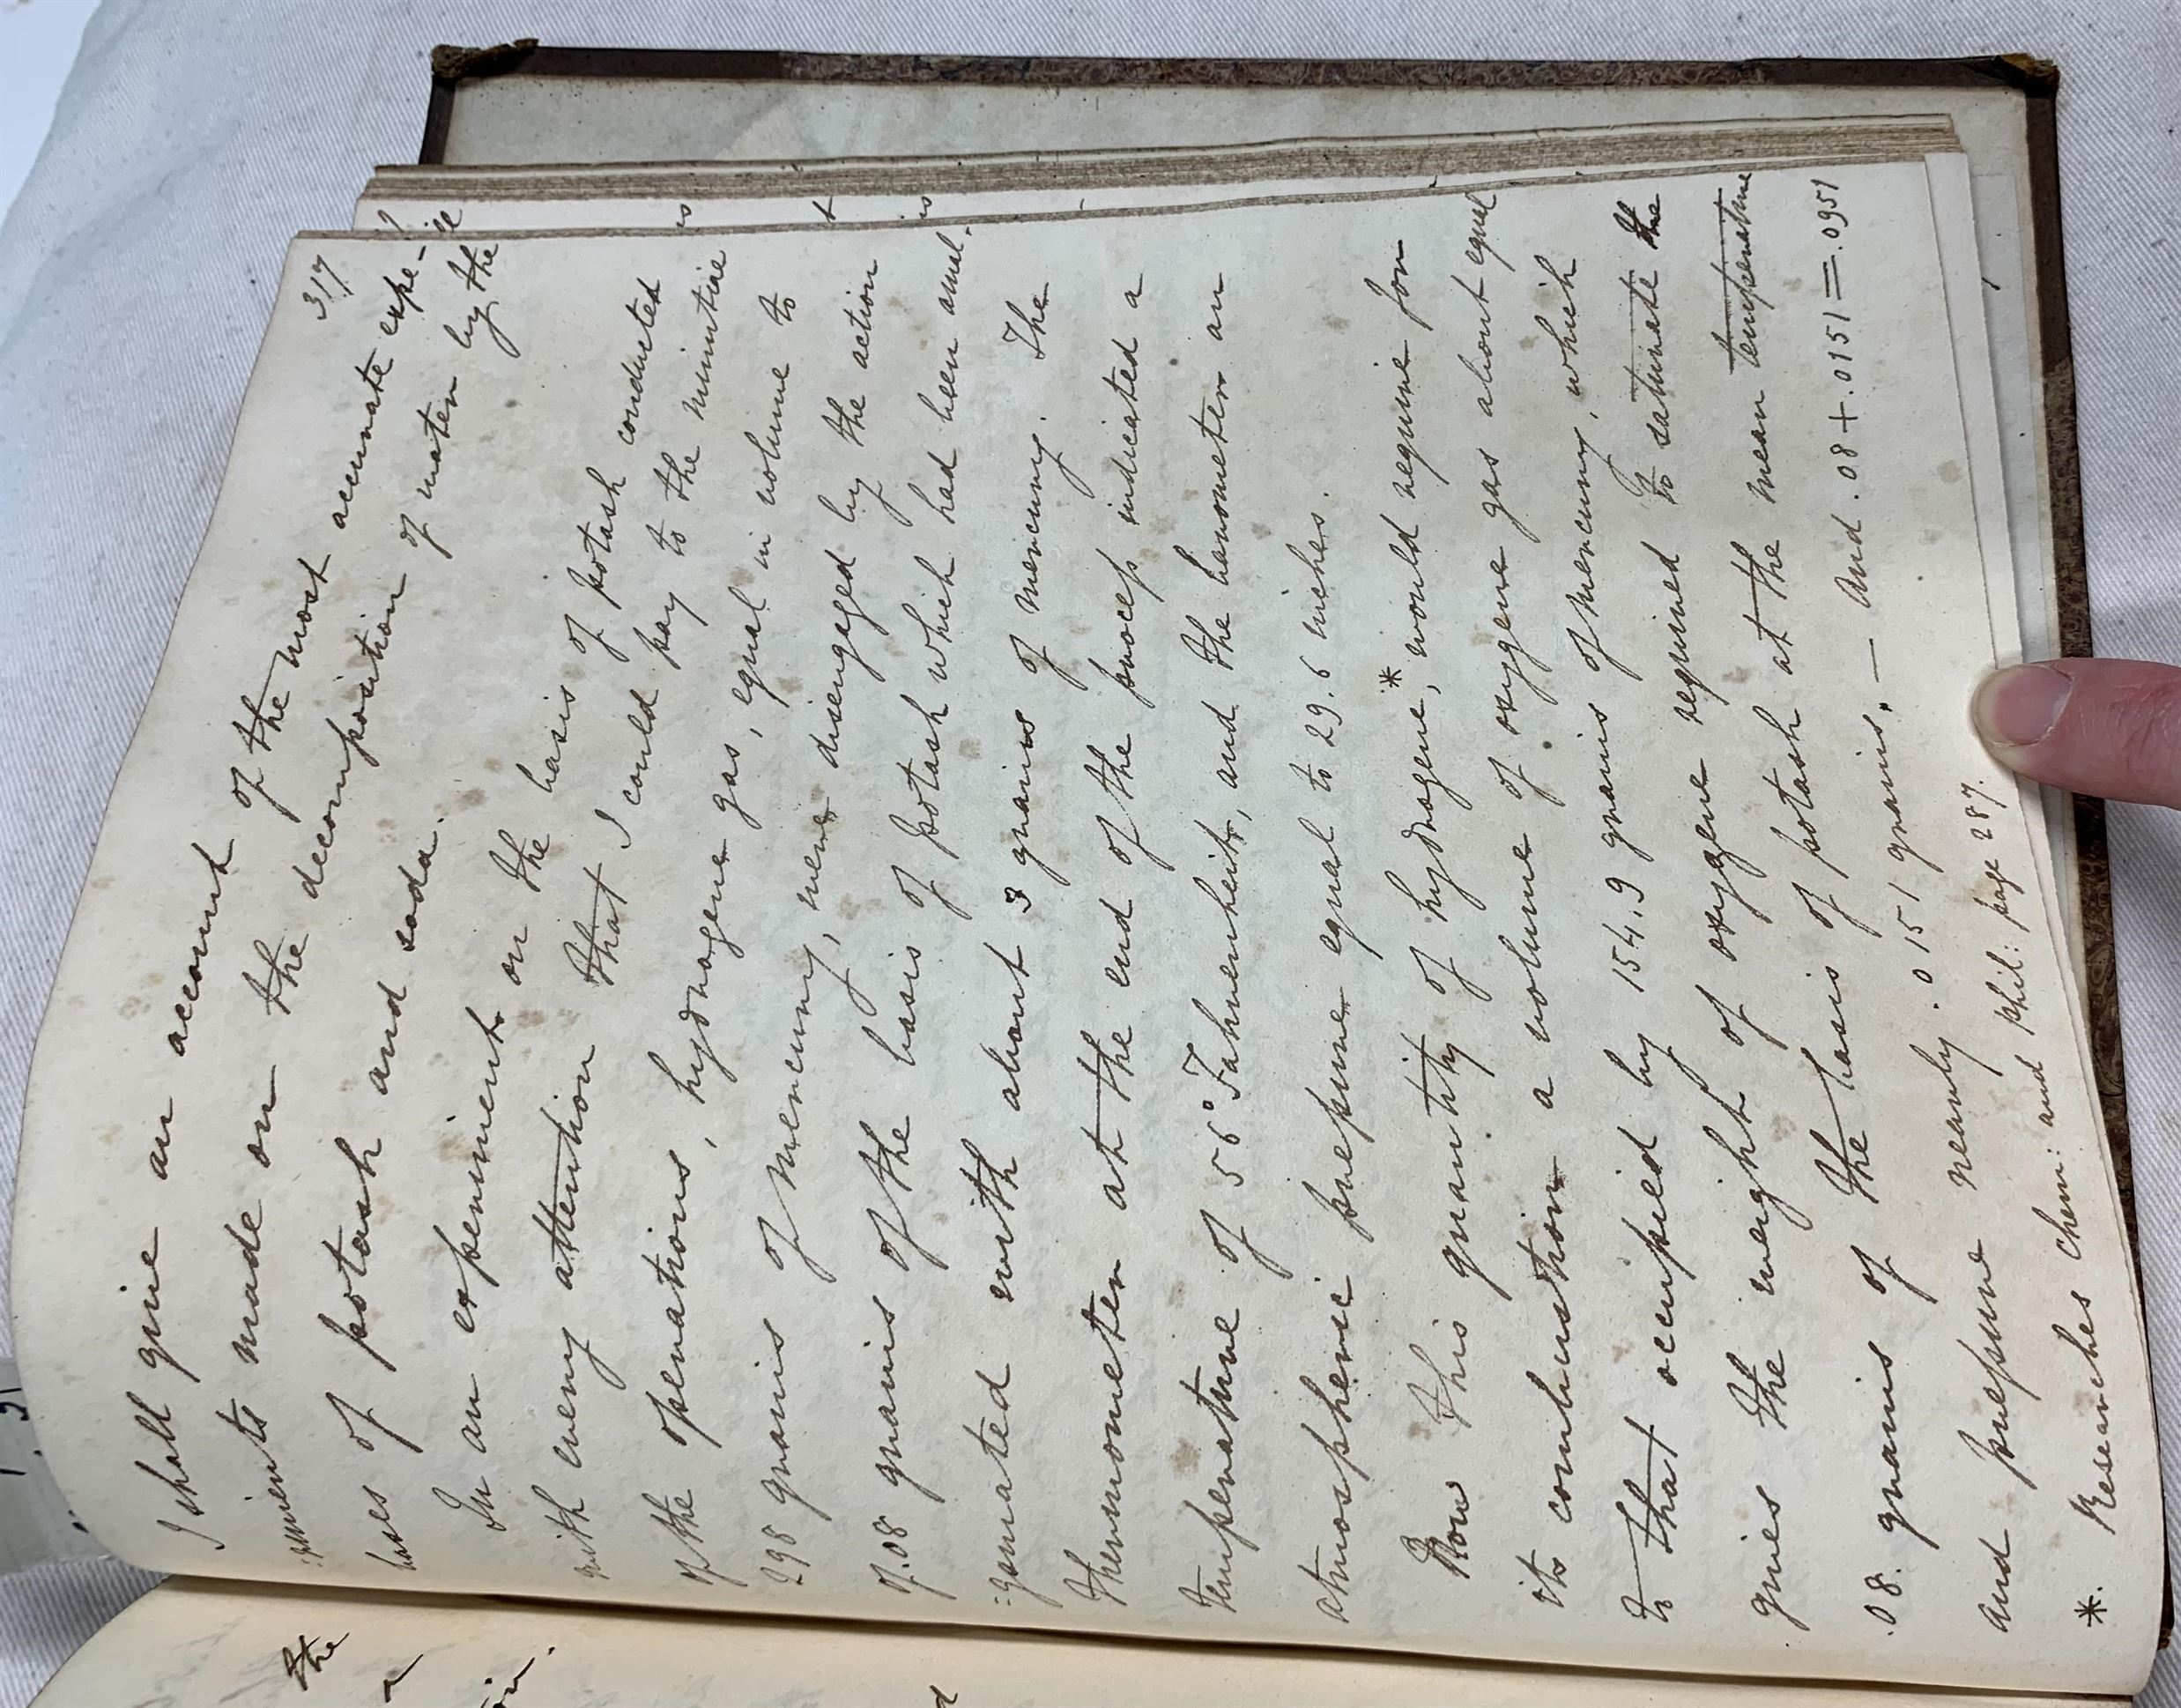 317
I shall give an account of the most accurate expe-
:riments made on the decomposition of water by the
bases of potash and soda.
In an experiment on the basis of potash conducted
with every attention that I could pay to the minutiae
of the operations, hydrogene gas, equal in volume to
298 grains of mercury, were disengaged by the action
of .08 grains of the basis of potash which had been amal.
:gamated with about 3 grains of mercury. The
thermometer at the end of the process indicated a
temperature of 56° Fahrenheit, and the barometer an
atmospheric pressure equal to 29.6 inches.
Now this quantity of hydrogene,* would require for
its combustion a volume of oxygene gas about equal
to that occupied by 154.9 grains of mercury, which
gives the weight of oxygene required to saturate the
.08. grains of the basis of potash at the mean temperature
and pressure nearly .0151 grains. — And .08 + .0151 = .0951
*. Researches Chem: and phil: page 287.
the